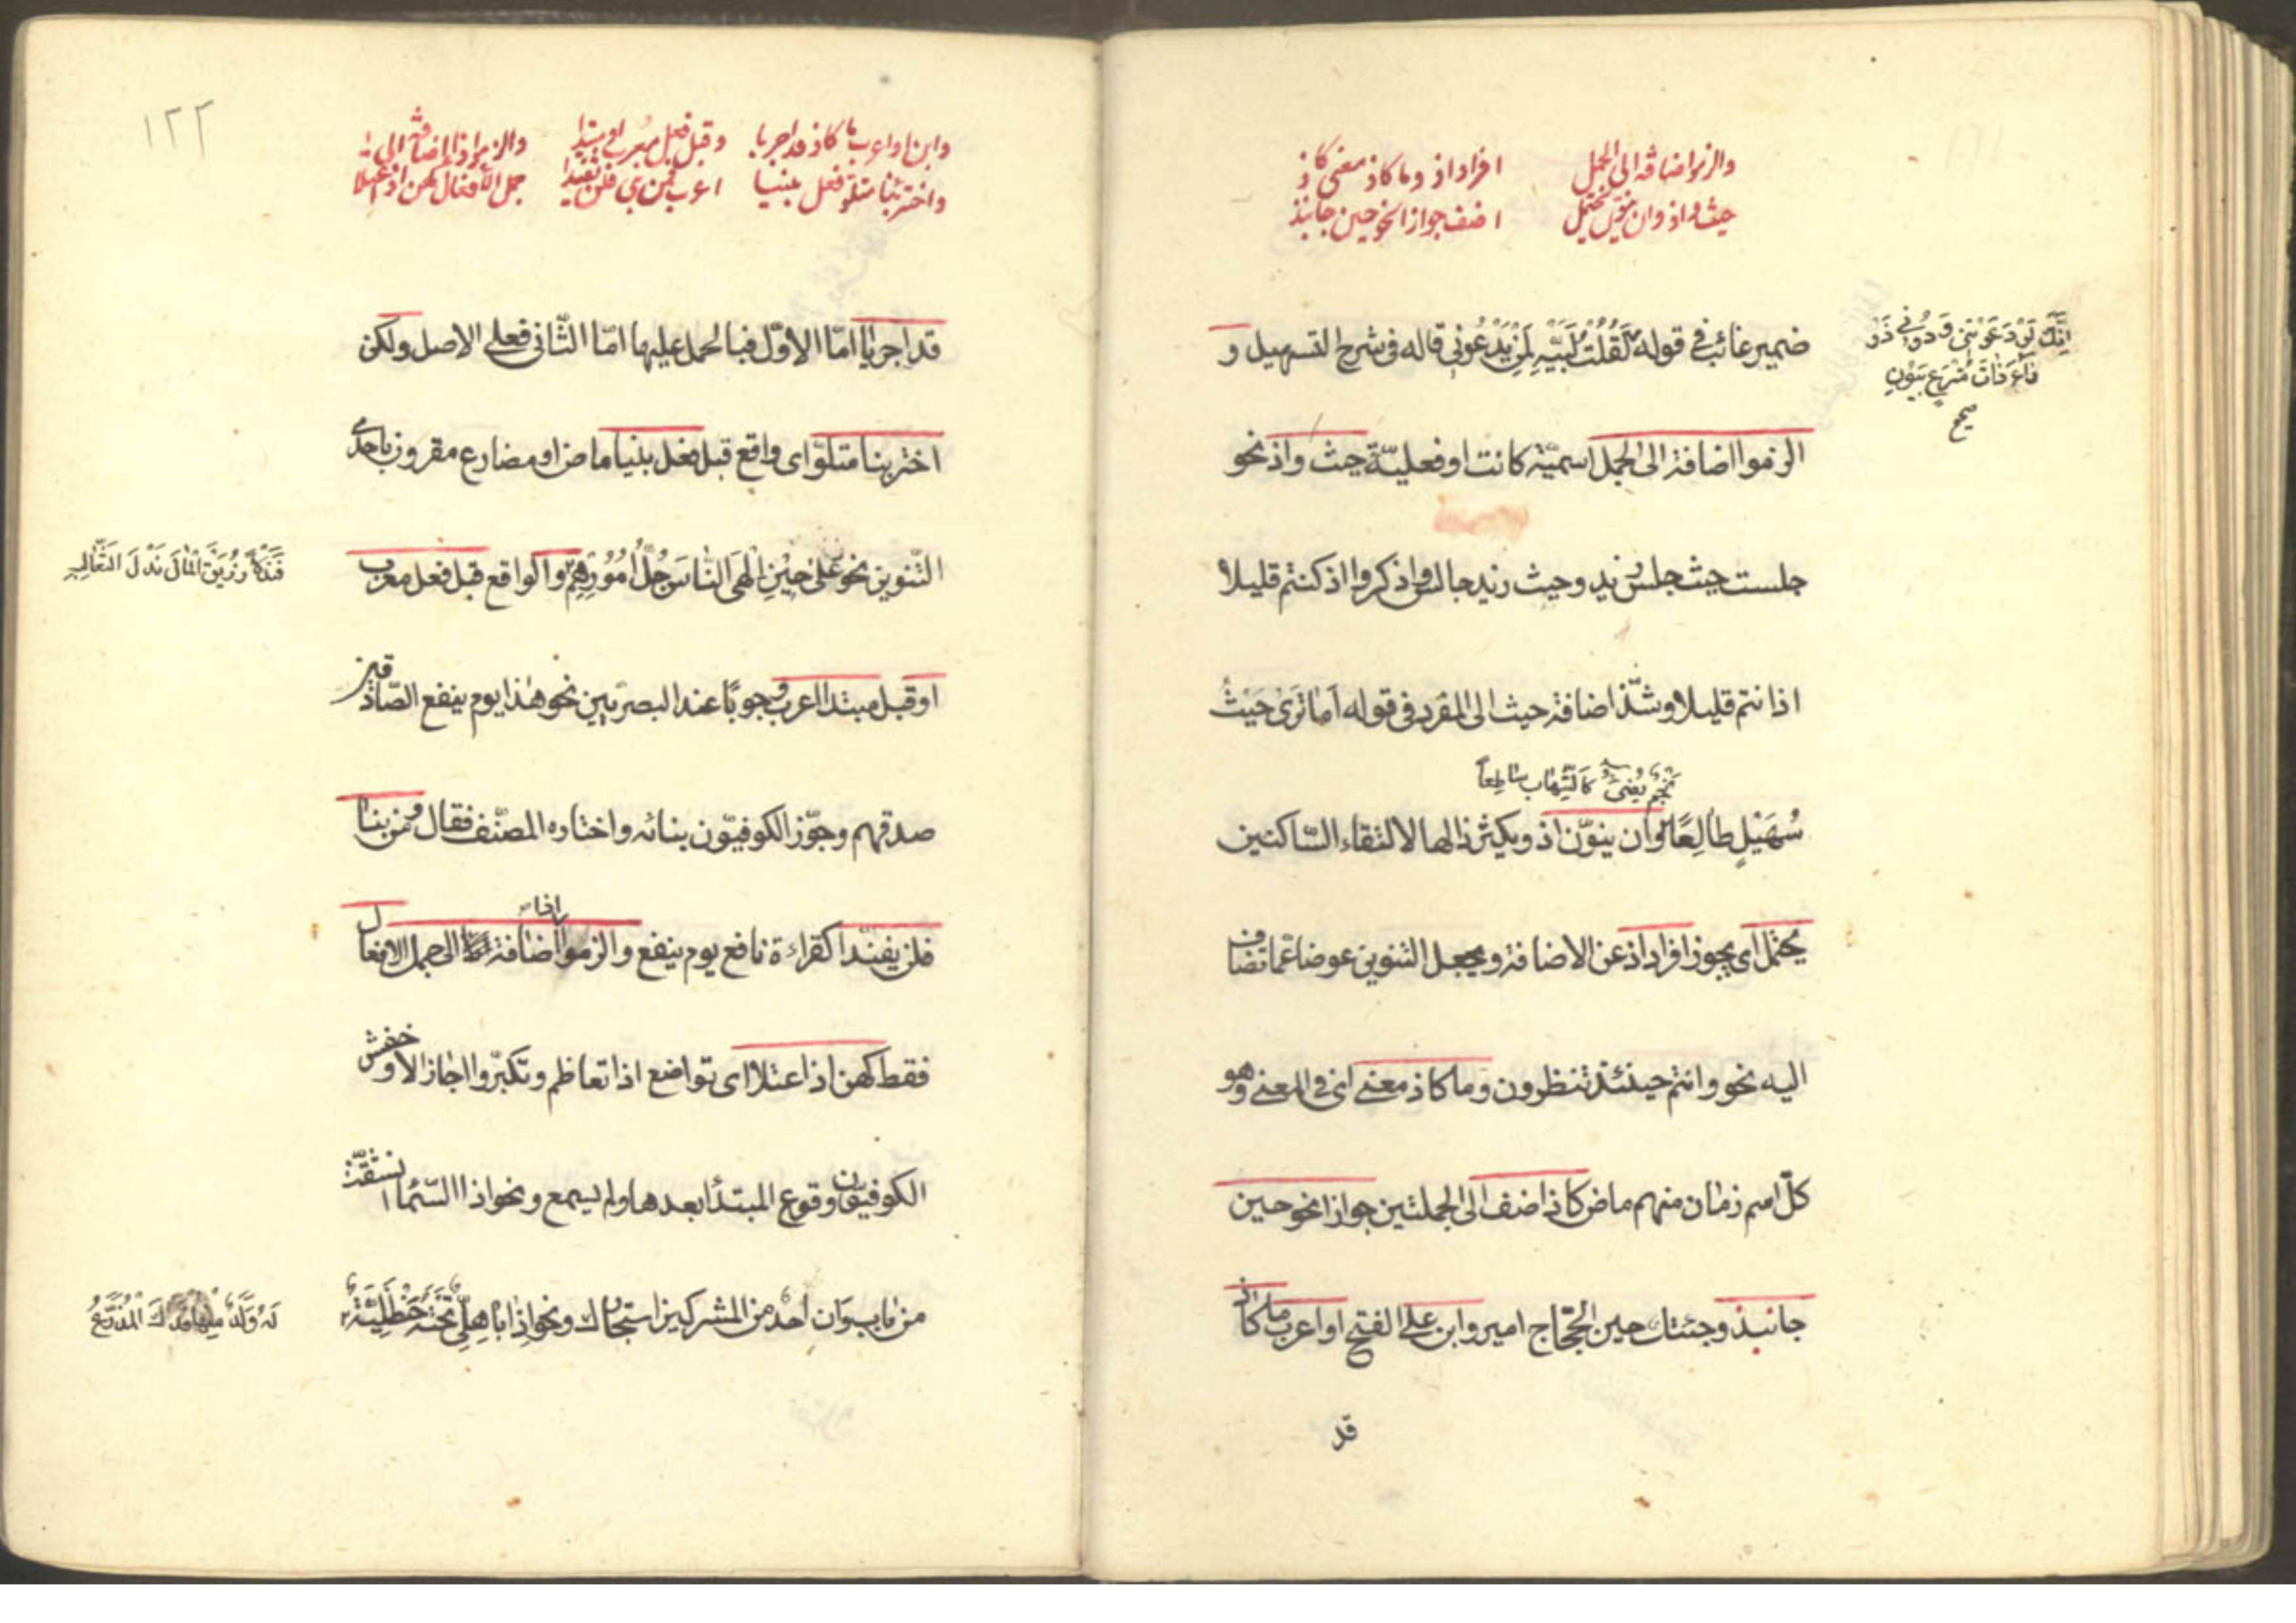 والزموا اضافة الى الجمل افراد اذ وما كاذ معنى كاذ
حيث واذ وان ينون يحتمل اضف جوازا نحو حين جا نبذ
ضمير غائب في قوله لَقُلْتُ لَبَّيْهِ لِمَنْ يَدْعُوني قاله في شرح التسهيل و
اِنَّكَ لَوْ دَعَوْتَنِي وَدُونِي
صح
الزموا اضافة الى الجمل اسميّة كانت او فعليّة حيث واذ نحو
جلست حيث جلس زيد وحيث زيد جالس واذكروا اذ كنتم قليلا
اذ انتم قليلا وشذّ اضافة حيث الى المفرد في قوله اَمَا تَرَى حَيْثُ
نَجْمٌ يُضِئُ كَالشِّهَابِ سَاطِعاً
سُهَيْلٍ طَالِعًا وان ينوّن اذ ويكثر ذالها لالتقاء السّاكنين
يحتمل اى يجوز افراد اذ عن الاضافة ويجعل التنوين عوضا عمّا تضاف
اليه نحو وانتم حينئذ تنظرون وما كاذ معنى اى في المعنى وهو
كلّ اسم زمان مبهم ماض كاذ اضف الى الجملتين جوازا نحو حين
جا نبذ وجئتك حين الحجّاج امير وابن على الفتح او اعرب ما كاذ
قد
١٢٢
وابن او اعرب ما كاذ قد اجريا وقبل فعل معرب او مبتدا والزموا اذا اضافة الى
واختر بنا متلو فعل بنيا اعرب فمن بنى فلن يفندا جمل الافعال كهن اذا اعتلا
قد اجريا امّا الاوّل فبالحمل عليها امّا الثّانى فعلى الاصل ولكن
اختر بنا متلوّ اى واقع قبل فعل بنيا ماض او مضارع مقرون باحدى
التّنوين نحو عَلىٰ حِيْنِ اَلْهَى النّٰاسَ جُلُّ اُمُوْرِهِمْ والواقع قبل فعل معرب
فَنَدْلاً زُرَيْقُ الْمٰالَ نَدْلَ الثَّعٰالِبِ
او قبل مبتدا اعرب وجوبًا عند البصريّين نحو هذا يوم ينفع الصّادقين
صدقهم وجوّز الكوفيّون بنائه واختاره المصنّف فقال ومن بنا
فلن يفنّدا كقراءة نافع يوم ينفع والزموا اذا اضافة الى جمل الافعال
فقط كهن اذا اعتلا اى تواضع اذا تعاظم وتكبّر واجاز الاخفش و
الكوفيّون وقوع المبتدأ بعدها ولم يسمع ونحو اذا السّماء انشقّت
من باب وَان احد من المشركين استجارك ونحو اِذا بَاهِلِيٌّ تَحْتَهُ حَنْظَلِيَّةٌ
لَهُ وَلَدٌ مِنْهٰا فَذٰاكَ الْمُذَرَّعُ